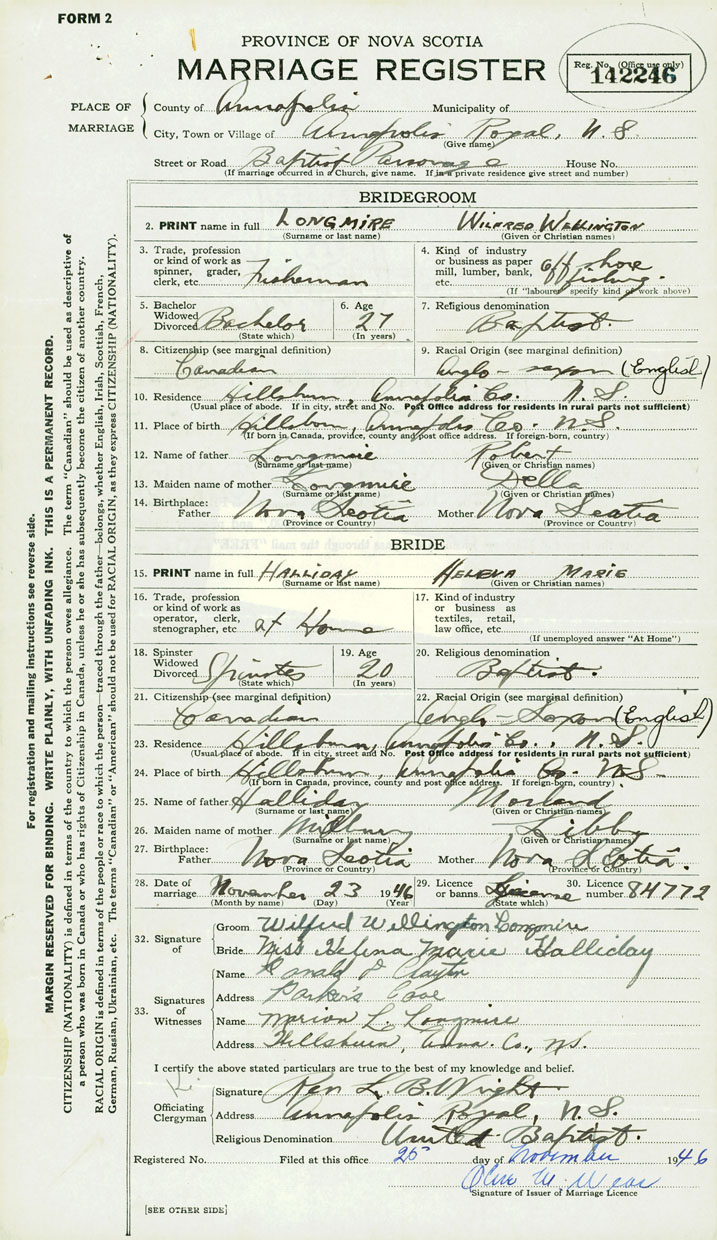 FORM 2
PROVINCE OF NOVA SCOTIA
MARRIAGE REGISTER
Reg. No. (Office use only)
142246
PLACE OF MARRIAGE
County of Annapolis Municipality of
City, Town or Village of Annapolis Royal, N.S
(Give name)
Street or Road Baptist Parsonage House No.
(If marriage occurred in a Church, give name. If in a private residence give street and number)
BRIDEGROOM
2. PRINT name in full LONGMIRE WILFRED WELLINGTON
(Surname or last name) (Given or Christian names)
3. Trade, profession or kind of work as spinner, grader, clerk, etc. Fisherman
4. Kind of industry or business as paper mill, lumber, bank, etc. off shore fishing.
(If "labourer" specify kind of work above)
5. Bachelor Widowed Divorced Bachelor
(State which)
6. Age 27
(In years)
7. Religious denomination Baptist.
8. Citizenship (see marginal definition) Canadian
9. Racial Origin (see marginal definition) Anglo-saxon (English)
10. Residence Hillsburn, Annapolis Co. N.S.
(Usual place of abode. If in city, street and No. Post Office address for residents in rural parts not sufficient)
11. Place of birth Hillsburn, Annapolis Co. N.S.
(If born in Canada, province, county and post office address. If foreign-born, country)
12. Name of father Longmire Robert
(Surname or last name) (Given or Christian names)
13. Maiden name of mother Longmire Della
(Surname or last name) (Given or Christian names)
14. Birthplace: Father Nova Scotia Mother Nova Scotia
(Province or Country) (Province or Country)
BRIDE
15. PRINT name in full HALLIDAY HELENA MARIE
(Surname or last name) (Given or Christian names)
16. Trade, profession or kind of work as operator, clerk, stenographer, etc at Home
17. Kind of industry or business as textiles, retail, law office, etc.
(If unemployed answer "At Home")
18. Spinster Widowed Divorced Spinster
(State which)
19. Age 20
(In years)
20. Religious denomination Baptist.
21. Citizenship (see marginal definition) Canadian
22. Racial Origin (see marginal definition) Anglo-Saxon (English)
23. Residence Hillsburn, Annapolis Co., N.S.
(Usual place of abode. If in city, street and No. Post Office address for residents in rural parts not sufficient)
24. Place of birth Hillsburn, Annapolis Co. N.S.
(If born in Canada, province, county and post office address. If foreign-born, country)
25. Name of father Halliday
(Surname or last name) (Given or Christian names)
26. Maiden name of mother Milbury Libby
(Surname or last name) (Given or Christian names)
27. Birthplace: Father Nova Scotia Mother Nova Scotia.
(Province or Country) (Province or Country)
28. Date of marriage November 23 1946
(Month by name) (Day) (Year)
29. Licence or banns. License
(State which)
30. Licence number 84772
32. Signature of
Groom Wilfred Wellington Longmire
Bride Miss Helena Marie Halliday
33. Signatures of Witnesses
Name Ronald D Clayton
Address Parker's Cove
Name Marion L. Longmire
Address Hillsburn, Anna. Co., N.S.
I certify the above stated particulars are true to the best of my knowledge and belief.
Officiating Clergyman
Signature Ken L. B. Wright
Address Annapolis Royal, N.S.
Religious Denomination United Baptist.
Registered No. Filed at this office 25 day of November 1946
Olive M. Wear
Signature of Issuer of Marriage Licence
[SEE OTHER SIDE]
For registration and mailing instructions see reverse side.
MARGIN RESERVED FOR BINDING. WRITE PLAINLY, WITH UNFADING INK. THIS IS A PERMANENT RECORD.
CITIZENSHIP (NATIONALITY) is defined in terms of the country to which the person owes allegiance. The term "Canadian" should be used as descriptive of
a person who was born in Canada or who has rights of Citizenship in Canada, unless he or she has subsequently become the citizen of another country.
RACIAL ORIGIN is defined in terms of the people or race to which the person—traced through the father—belongs, whether English, Irish, Scottish, French,
German, Russian, Ukrainian, etc. The terms "Canadian" or "American" should not be used for RACIAL ORIGIN, as they express CITIZENSHIP (NATIONALITY).